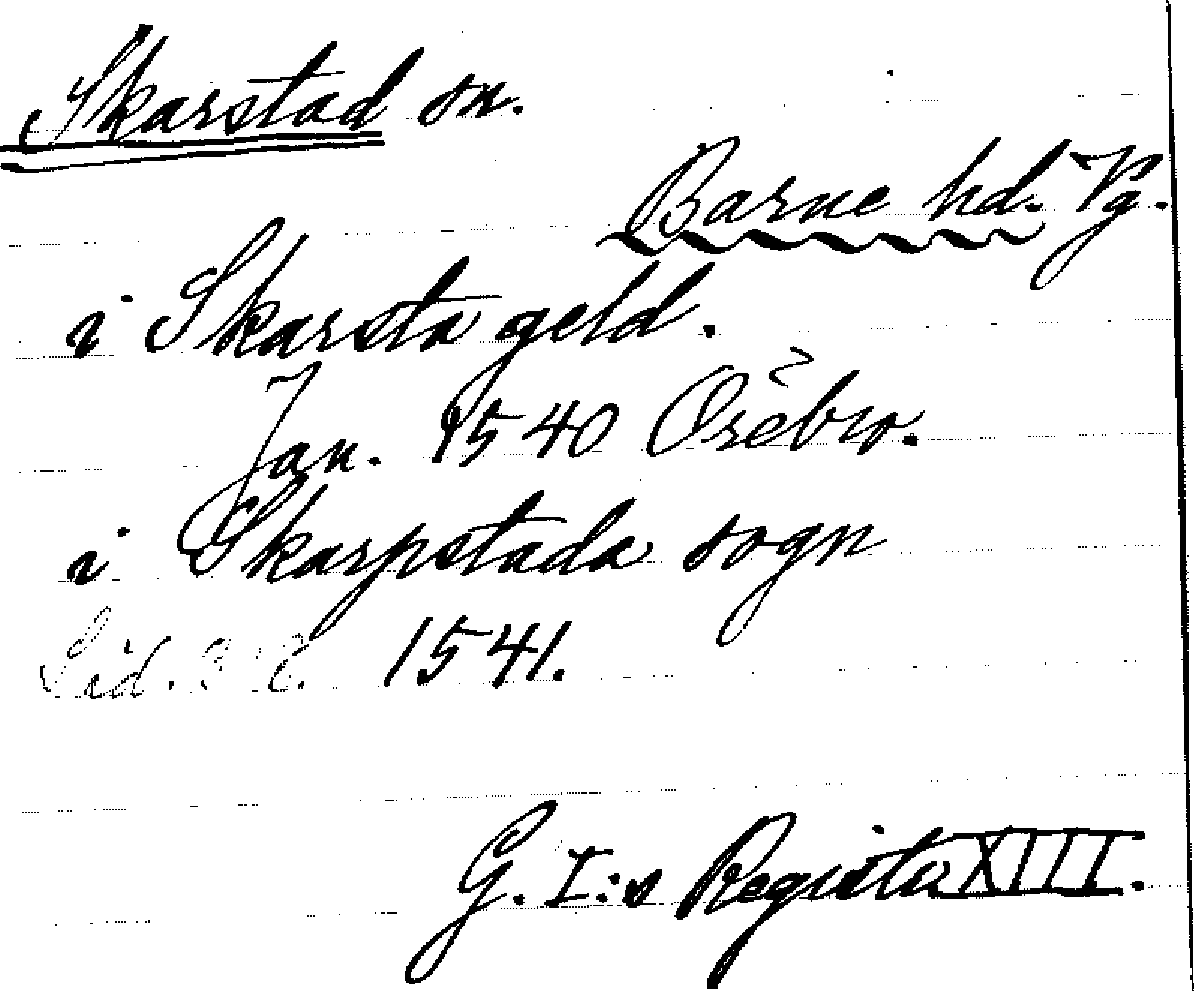 Skarstad sn.
Barne hd. Vg.
i Skarsta geld.
Jan. 1540 Örebro.
i Skarpstada sogn
Sid. 1541.
G. I:s Registr. XIII.